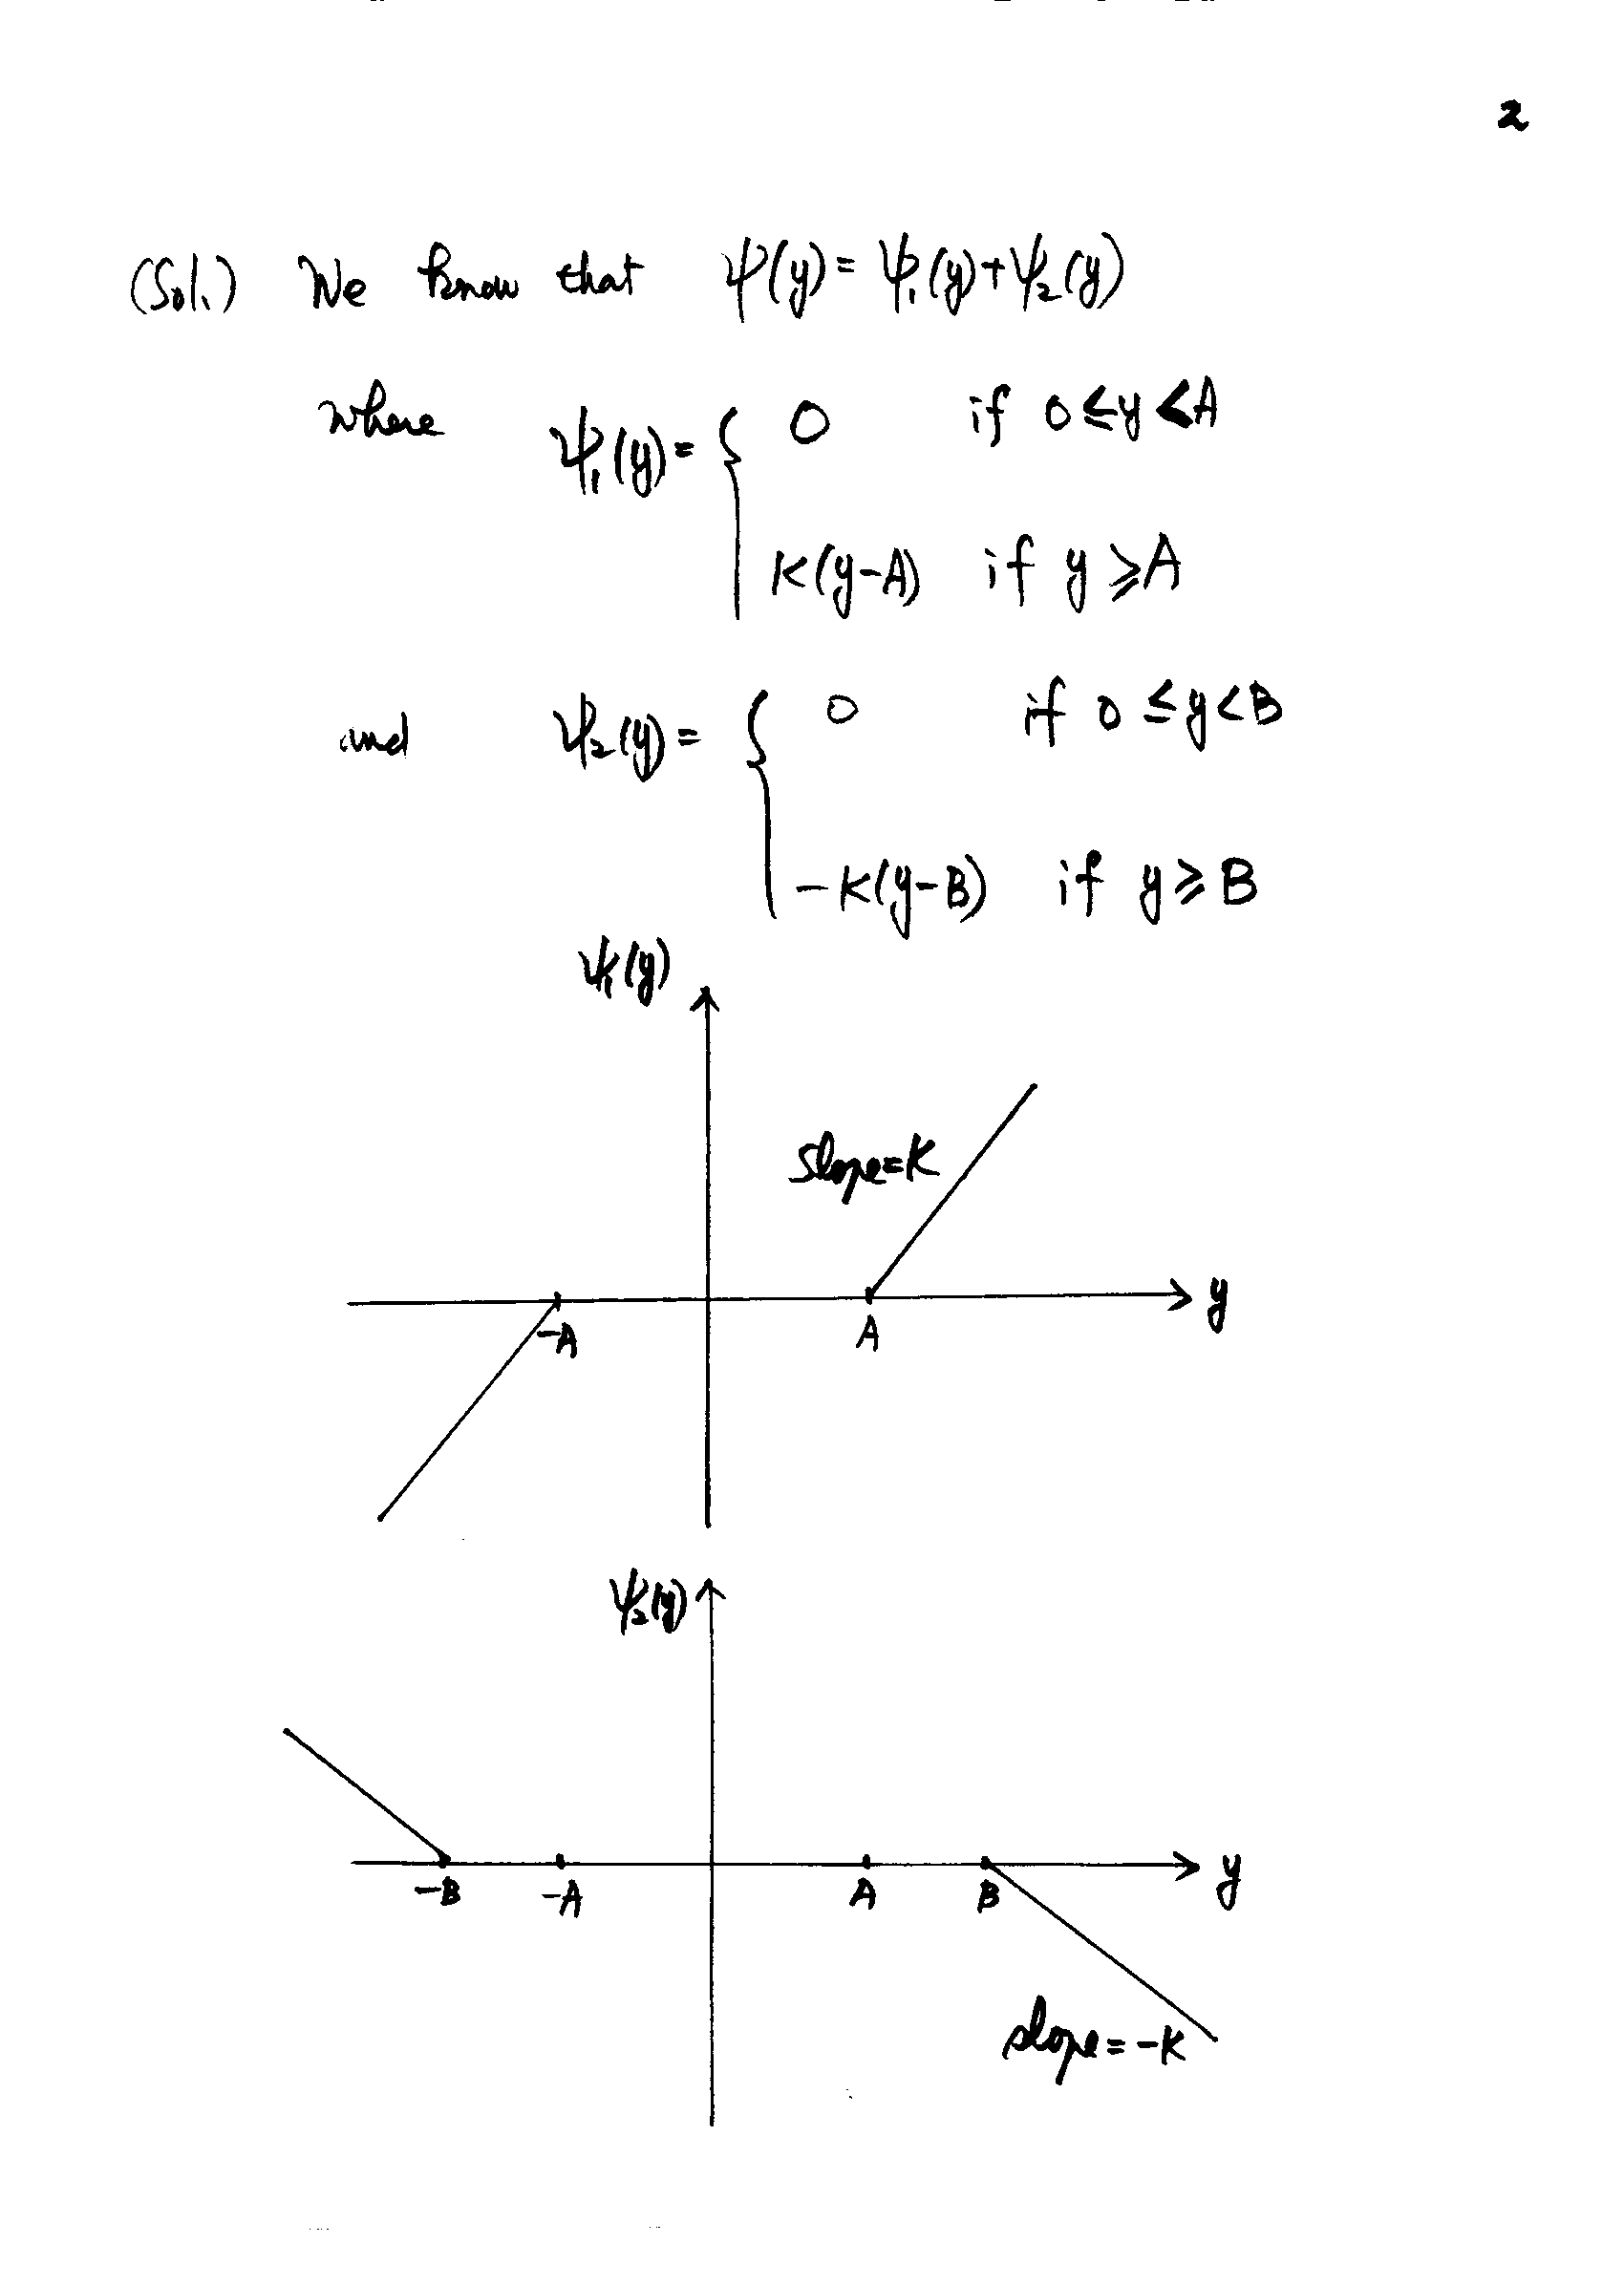 2
(Sol.) We know that ψ(y) = ψ₁(y) + ψ₂(y)
where ψ₁(y) = { 0 if 0 ≤ y < A
K(y-A) if y ≥ A
and ψ₂(y) = { 0 if 0 ≤ y < B
-K(y-B) if y ≥ B
ψ₁(y)
slope=K
y
-A A
ψ₂(y)
y
-B -A A B
slope=-K